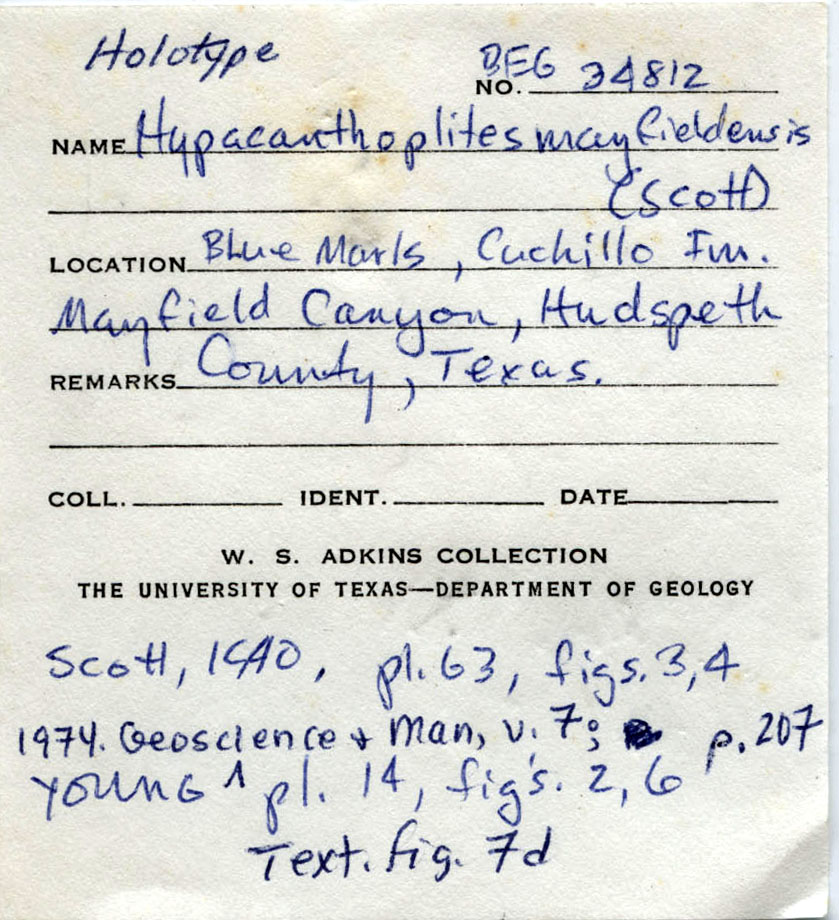 Holotype
NO. BEG 34812
NAME Hypacanthoplites mayfieldensis
(Scott)
LOCATION Blue Marls, Cuchillo Fm.
Mayfield Canyon, Hudspeth
REMARKS County, Texas.
COLL. IDENT. DATE
W. S. ADKINS COLLECTION
THE UNIVERSITY OF TEXAS—DEPARTMENT OF GEOLOGY
Scott, 1940, pl. 63, figs. 3, 4
1974. Geoscience + Man, v. 7; p. 207
YOUNG ^ pl. 14, fig's. 2, 6
Text. fig. 7d